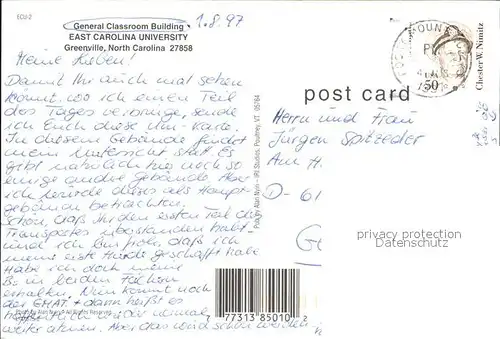 ECU-2
General Classroom Building
1.8.97
EAST CAROLINA UNIVERSITY
Greenville, North Carolina 27858
Meine Lieben!
Damit Ihr auch mal sehen
könnt, wo ich einen Teil
des Tages verbringe, sende
ich Euch diese Uni-Karte.
In diesem Gebäude findet
mein Unterricht statt. Es
gibt natürlich hier noch so
einige andre Gebäude. Aber
ich würde dieses als Haupt-
gebäude betrachten.
Schön, daß Ihr den ersten Teil des
Transportes überstanden habt
und ich bin froh, daß ich
meine erste Hürde geschafft habe
Habe ich doch meine
B's in beiden Fächern
erhalten. Nun kommt noch
der GMAT + dann heißt es
hoffentlich wieder einmal
weiter atmen. Aber das wird schon werden
Photo by Alan Nyiri © All Rights Reserved
Pub. by Alan Nyiri - IPII Studios, Poultney, VT 05764
7 77313 85010 2
post card
Chester W. Nimitz
50
Herrn und Frau
Jürgen Spitzeder
Am H
D-61
Datenschutz
Datenschutz